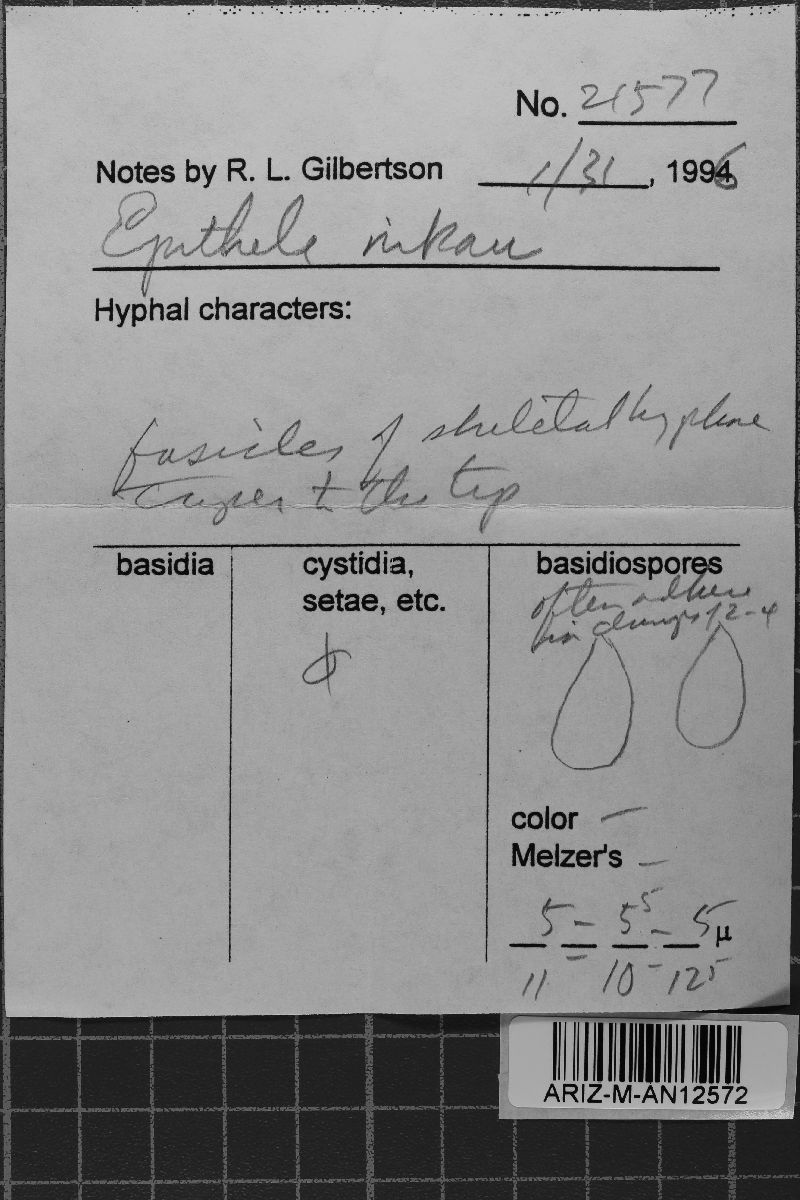 No. 21577
Notes by R. L. Gilbertson 1/31, 1996
Epithele nikau
Hyphal characters:
fasicles of skeletal hyphae
taper to the tip
basidia
cystidia,
setae, etc.
basidiospores
often adhere
in clumps of 2-4
color —
Melzer's —
5 – 5⁵ – 5 µ
11 – 10 – 12⁵
ARIZ-M-AN12572